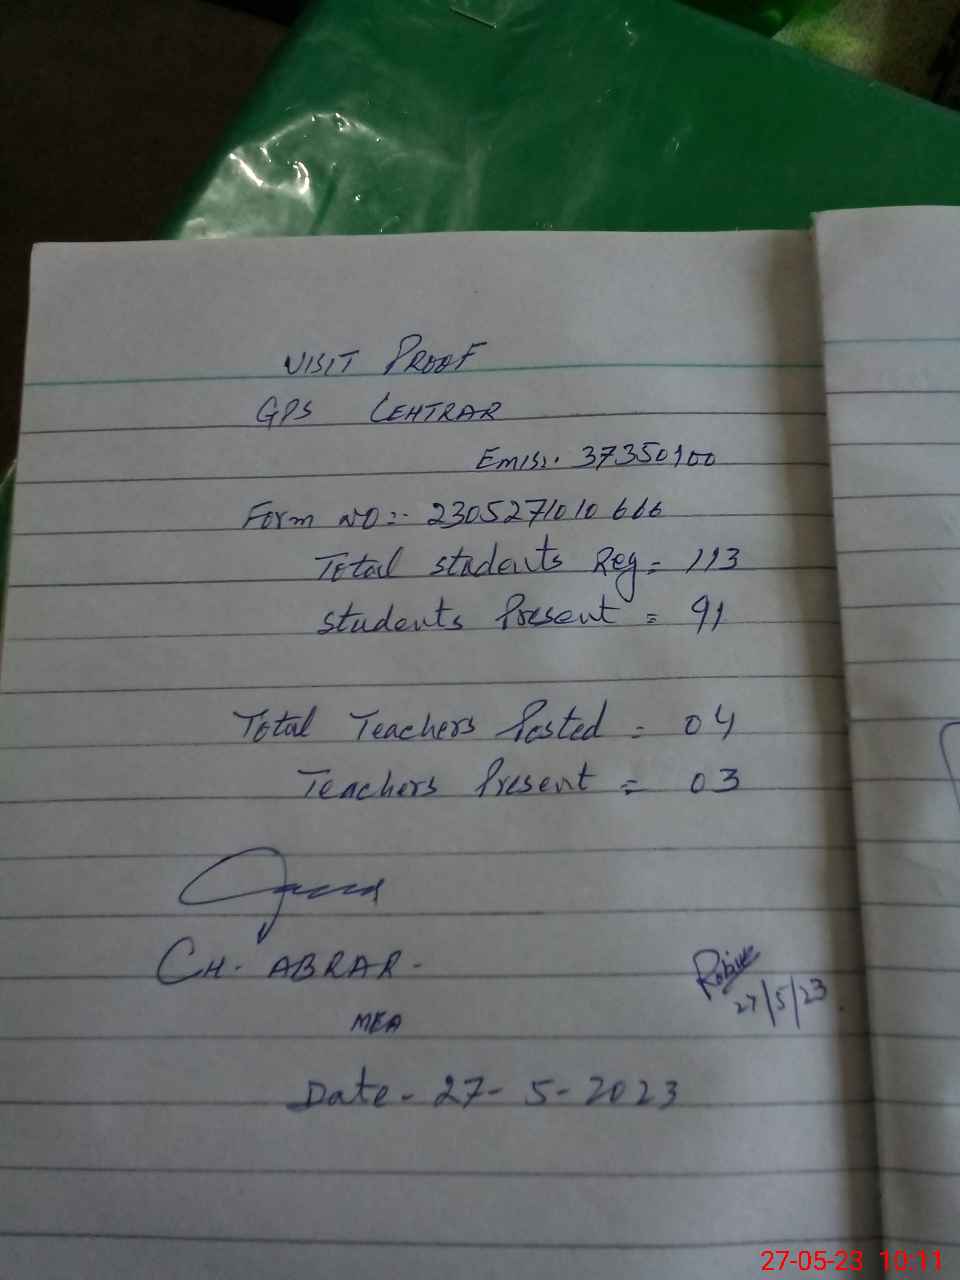 VISIT PROOF
GPS CEHTRAR
EMIS:. 37350100
Form NO:- 2305271010666
Total students Reg = 113
students Present = 91
Total Teachers Posted = 04
Teachers Present = 03
CH. ABRAR.
MEA
27/5/23
Date - 27-5-2023
27-05-23 10:11